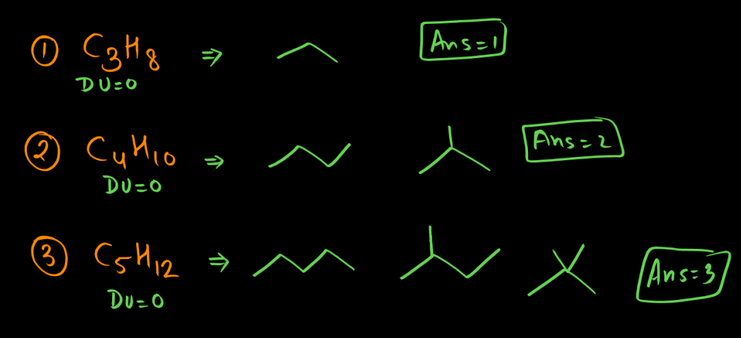 ① C₃H₈ ⇒ Ans=1
DU=0
② C₄H₁₀ ⇒ Ans=2
DU=0
③ C₅H₁₂ ⇒ Ans=3
DU=0